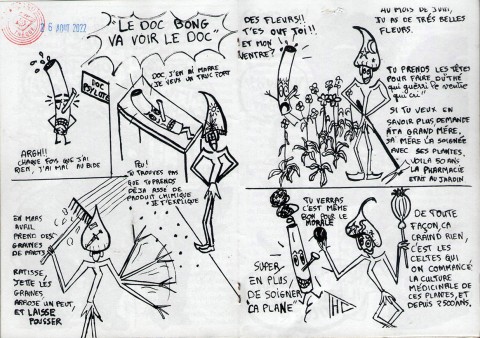 26 AOUT 2022
"LE DOC BONG
VA VOIR LE DOC"
DOC
PSYLOTE
DOC, J'EN AI MARRE
JE VEUX UN TRUC FORT
ARGH!!
CHAQUE FOIS QUE J'AI
RIEN, J'AI MAL AU BIDE
PEU!
TU TROUVES PAS
QUE TU PRENDS
DÉJÀ ASSÉ DE
PRODUIT CHIMIQUE
JE T'EXPLIQUE
DES FLEURS!!
T'ES OUF TOI!!
ET MON
VENTRE?
AU MOIS DE JUIN,
TU AS DE TRÉS BELLES
FLEURS.
TU PRENDS LES TÊTES
POUR FAIRE DU THÉ
QUI GUÉRRI LE VENTRE
QUI CRI"
SI TU VEUX EN
SAVOIR PLUS DEMANDE
A TA GRAND MÊRE,
SA MÊRE L'A SOIGNÉE
AVEC SES PLANTES.
VOILA 50 ANS
LA PHARMACIE
ETAIT AU JARDIN
EN MARS
AVRIL
PREND DES
GRAINES
DE PAVOTS
RATISSE,
JETTE LES
GRAINES
ARROSE UN PEUT,
ET LAISSE
POUSSER
TU VERRAS
C'EST MÊME
BON POUR LE
MORALE
SUPER
EN PLUS,
DE SOIGNER
ÇA PLANE"
THC
DE TOUTE
FAÇON, ÇA
CRAIND RIEN,
C'EST LES
CELTES QUI
ON COMMANCÉ
LA CULTURE
MÉDICINALE DE
CES PLANTES, ET
DEPUIS 2500 ANS.